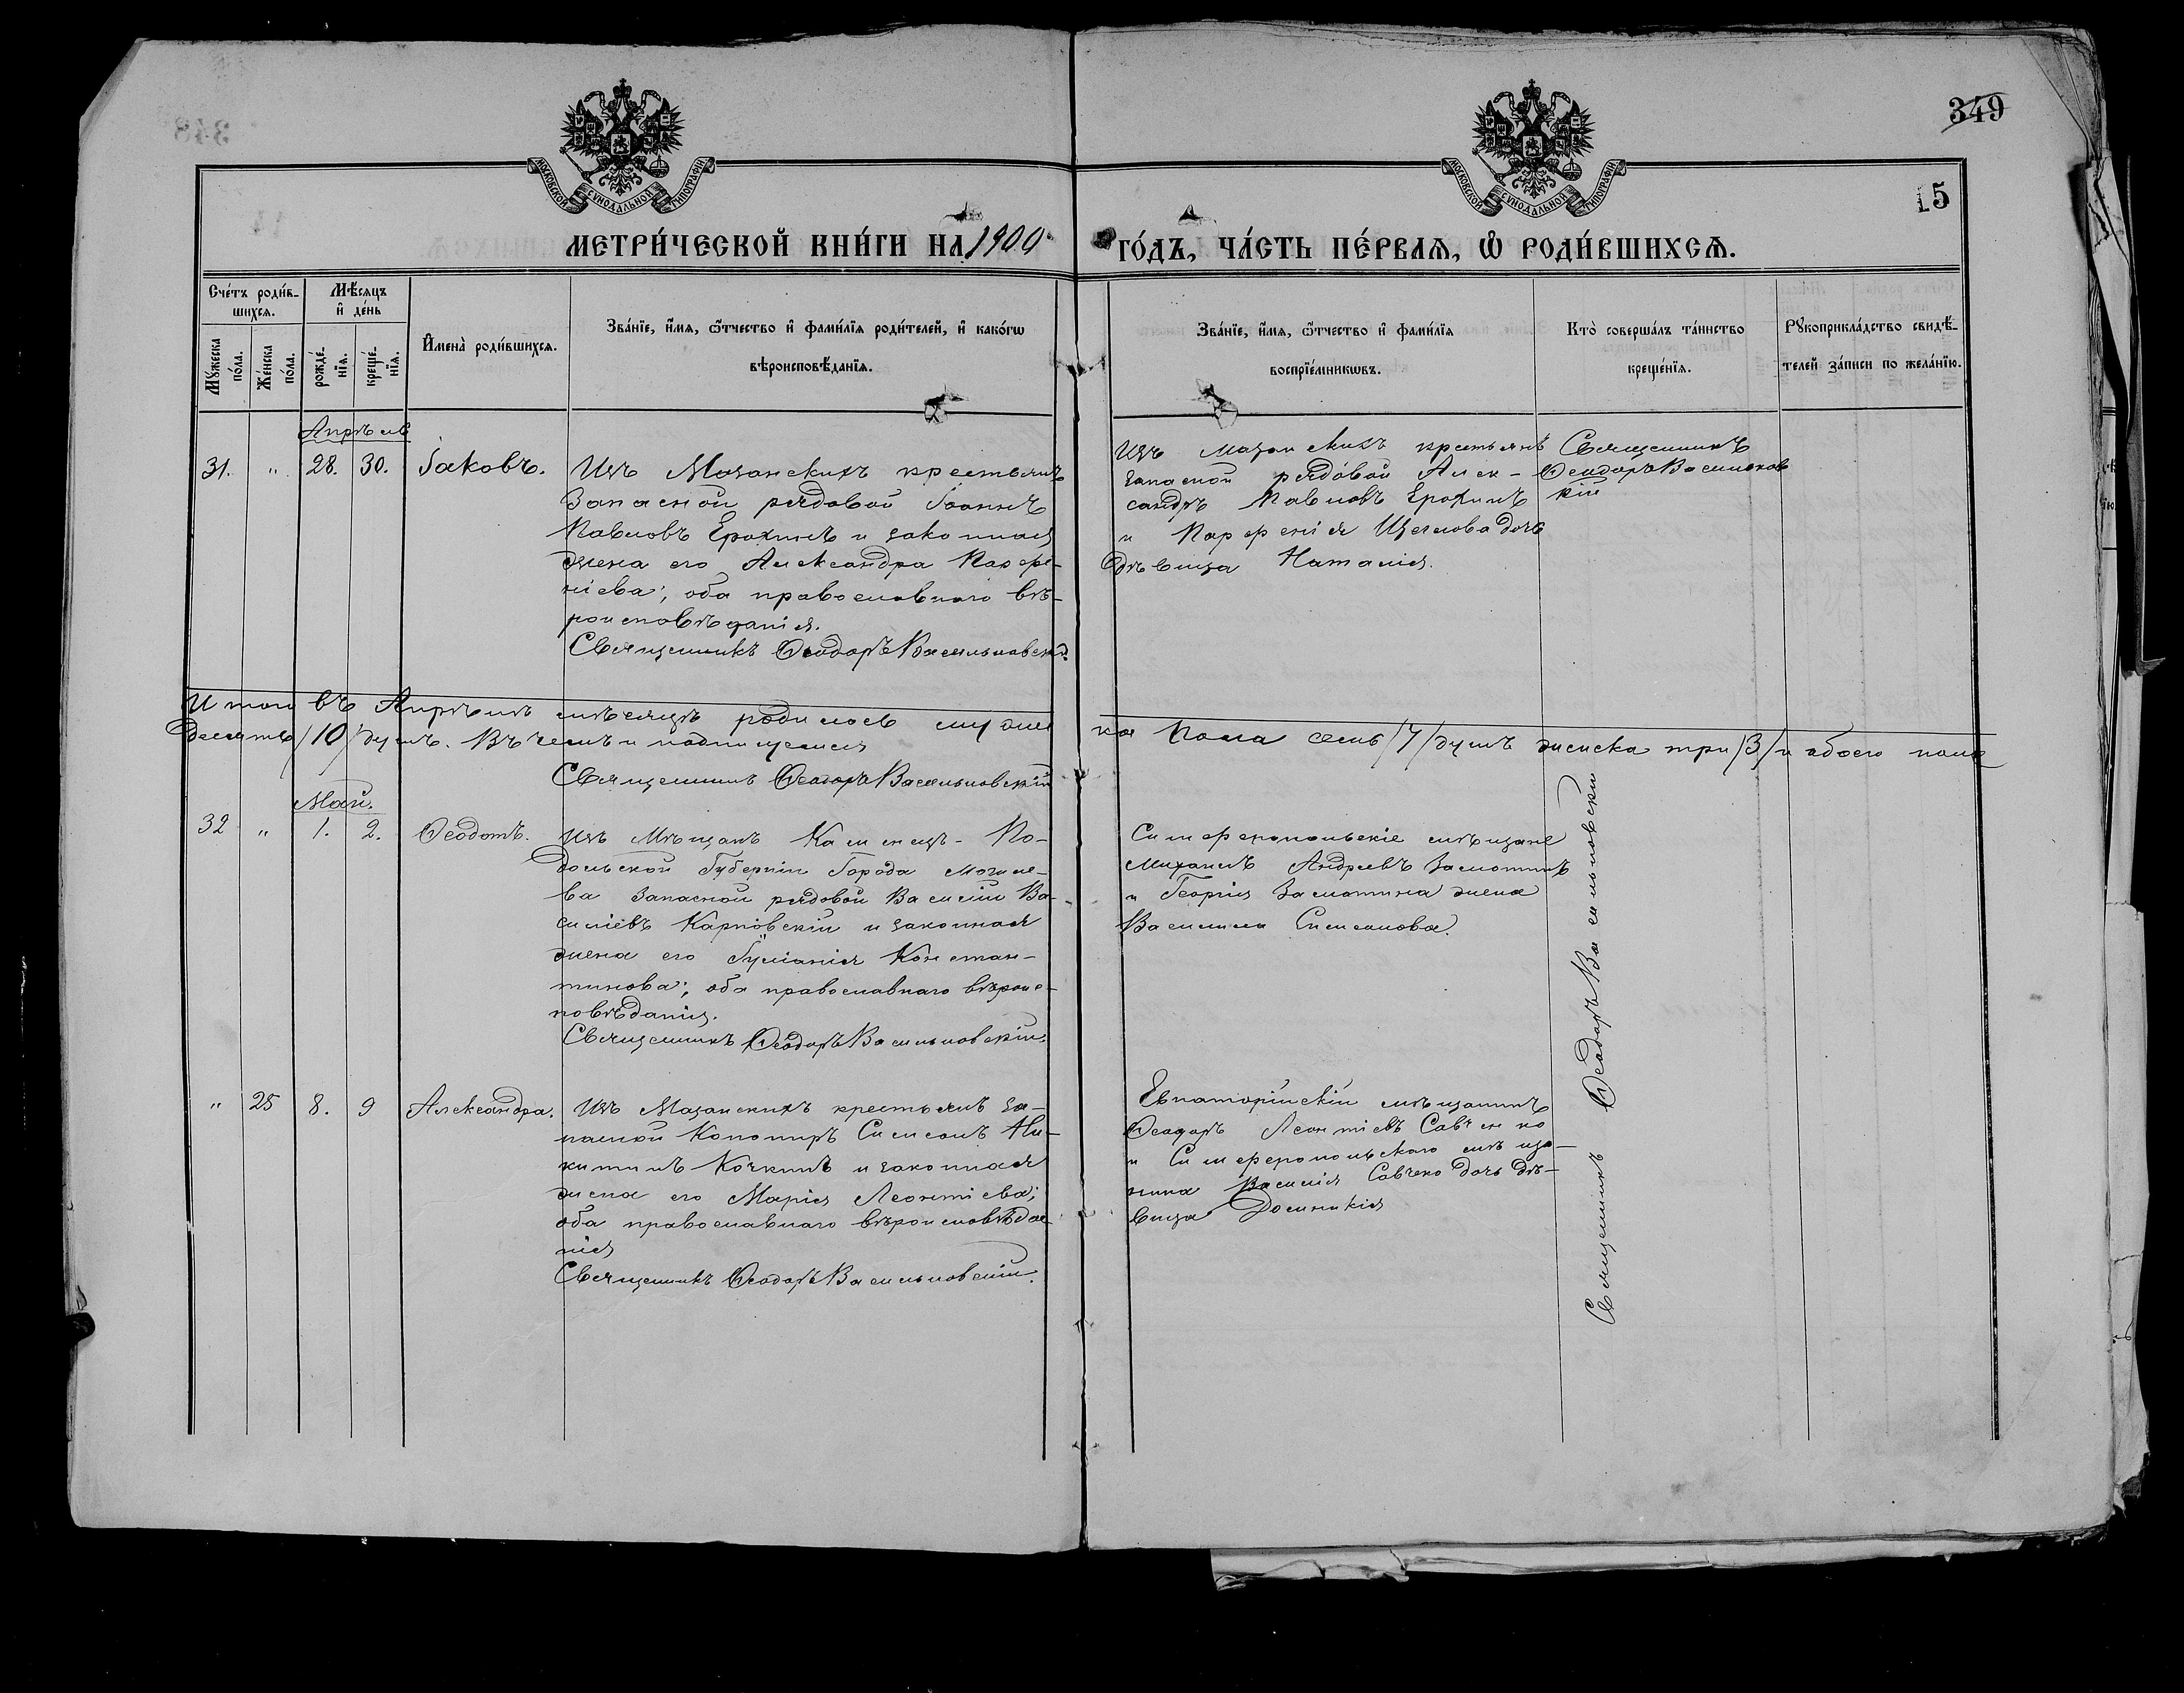 349
15
МОСКОВСКОЙ СѴНОДАЛЬНОЙ ТИПОГРАФІИ
МОСКОВСКОЙ СѴНОДАЛЬНОЙ ТИПОГРАФІИ
МЕТРИ́ЧЕСКОЙ КНИ́ГИ НА 1900
ГО́ДЪ, ЧА́СТЬ ПЕ́РВАЯ, Ѡ РОДИ́ВШИХСЯ.
Сче́тъ роди́в-
шихся.
Мꙋ́жеска
по́ла.
Же́нска
по́ла.
Мѣ́сяцъ
и҆ де́нь
рожде́-
нїя.
креще́-
нїя.
И҆мена̀ роди́вшихся.
Зва́нїе, и҆́мя, ѻ҆́тчество и҆ фами́лїя роди́телей, и҆ како́гѡ
вѣроисповѣ́данїя.
Зва́нїе, и҆́мя, ѻ҆́тчество и҆ фами́лїя
воспрїе́мникѡвъ.
Кто̀ соверша́лъ та́инство
креще́нїя.
Рꙋкоприкла́дство свидѣ́-
телей за́писи по жела́нїю.
Апрѣль
31. " 28. 30. Іаковъ.
Изъ Мазанскихъ крестьянъ
Запасной рядовой Іоаннъ
Павловъ Ерохинъ и законная
жена его Александра Парѳе-
ніева; оба православнаго вѣ-
роисповѣданія.
Священникъ Ѳеодоръ Васильковскій.
Изъ Мазанскихъ крестьянъ
запасной рядовой Алек-
сандръ Павловъ Ерохинъ
и Парфенія Щеглова дочь
дѣвица Наталія.
Священникъ
Ѳеодоръ Васильков
кій
Итого въ Апрѣлѣ мѣсяцѣ родилось муже
ка пола семь /7/ душъ женска три /3/ и обоего пола
десять /10/ душъ. Въ чемъ и подписуемся
Священникъ Ѳеодоръ Васильковскій
Май.
32 " 1. 2. Ѳеодотъ.
Изъ Мѣщанъ Каменецъ-По-
дольской Губерніи Города Могиле-
ва Запасной рядовой Василій Ва-
силіевъ Карповскій и законная
жена его Іуліанія Констан-
тинова; оба православнаго вѣроис-
повѣданія.
Священникъ Ѳеодоръ Васильковскій.
Симферопольскіе мѣщане
Михаилъ Андреевъ Замотинъ
и Георгія Замотина жена
Василиса Симеонова.
" 25 8. 9 Александра.
Изъ Мазанскихъ крестьянъ за-
пасной Конониръ Симеонъ Ни-
китинъ Кочкинъ и законная
жена его Марія Леонтіева;
оба православнаго вѣроисповѣда-
нія
Священникъ Ѳеодоръ Васильковскій.
Евпаторійскій мѣщанинъ
Ѳеодоръ Леонтіевъ Савченко
и Симферопольскаго мѣща-
нина Василія Савчено дочь дѣ-
вица Домникія
Священникъ Ѳеодоръ Васильковскій